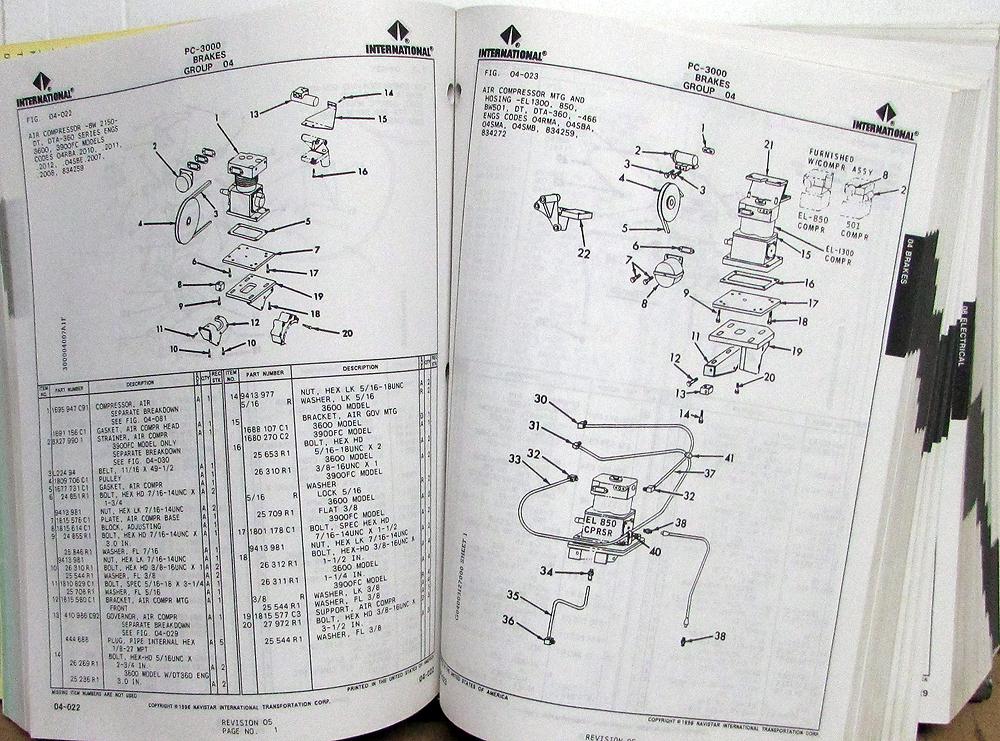 INTERNATIONAL®
PC-3000
BRAKES
GROUP 04
INTERNATIONAL®
FIG. 04-022
AIR COMPRESSOR -BW 2150-
DT, DTA-360 SERIES ENGS
3600, 3900FC MODELS
CODES 04RBA,2010, .2011,
.2012, .04SBE,2007,
.2008, 834259
13
14
15
1
2
16
3
4
5
6
7
17
8
19
9
18
11
12
20
10
10
300004007A1F
ITEM NO.
PART NUMBER
DESCRIPTION
QTY
REC STK
ITEM NO.
PART NUMBER
DESCRIPTION
1 1695 947 C91 COMPRESSOR, AIR A 1
SEPARATE BREAKDOWN
SEE FIG. 04-081
1691 156 C1 GASKET, AIR COMPR HEAD A 1
STRAINER, AIR COMPR
3900FC MODEL ONLY
SEPARATE BREAKDOWN
SEE FIG. 04-030
BELT, 11/16 X 49-1/2 A 1
4 1809 706 C1 PULLEY A 1
5 1677 731 C1 GASKET, AIR COMPR A 1
6 24 851 R1 BOLT, HEX HD 7/16-14UNC X A 2
1-3/4
9413 981 NUT, HEX LK 7/16-14UNC A 2
7 1815 576 C1 PLATE, AIR COMPR BASE A 1
8 1815 614 C1 BLOCK, ADJUSTING A 1
9 24 855 R1 BOLT, HEX HD 7/16-14UNC X A 1
3 IN.
25 846 R1 WASHER, FL 7/16 A 1
9413 981 NUT, HEX LK 7/16-14UNC A 1
10 26 310 R1 BOLT, HEX HD 3/8-16UNC X 1 A 2
25 544 R1 WASHER, FL 3/8 A 2
11 1810 829 C1 BOLT, SPEC 5/16-18 X 3-1/4 A 1
25 708 R1 WASHER, FL 5/16 A 1
12 1815 580 C1 BRACKET, AIR COMPR MTG A 1
FRONT
13 410 986 C92 GOVERNOR, AIR COMPR A 1
SEPARATE BREAKDOWN
SEE FIG. 04-029
444 688 PLUG, PIPE INTERNAL HEX A 5
1/8-27 MPT
14 BOLT, HEX-HD 5/16UNC X
26 269 R1 2-3/4 IN. A 2
3600 MODEL W/DT360 ENG
25 236 R1 3.0 IN. A 2
14 9413 977 NUT, HEX LK 5/16-18UNC
5/16 R WASHER, LK 5/16
3600 MODEL
15 BRACKET, AIR GOV MTG
1688 107 C1 3600 MODEL
1680 270 C2 3900FC MODEL
16 BOLT, HEX HD
25 653 R1 5/16-18UNC X 2
3600 MODEL
26 310 R1 3/8-16UNC X 1
3900FC MODEL
WASHER
5/16 R LOCK 5/16
3600 MODEL
25 709 R1 FLAT 3/8
3900FC MODEL
17 1801 178 C1 BOLT, SPEC HEX HD
7/16-14UNC X 1-1/2
9413 981 NUT, HEX LK 7/16-14UNC
18 BOLT, HEX-HD 3/8-16UNC X
26 312 R1 1-1/2 IN.
3600 MODEL
26 311 R1 1-1/4 IN.
3900FC MODEL
3/8 R WASHER, LK 3/8
25 544 R1 WASHER, FL 3/8
19 1815 577 C3 SUPPORT, AIR COMPR
20 27 972 R1 BOLT, HEX HD 3/8-16UNC X
3-1/2 IN.
25 544 R1 WASHER, FL 3/8
MISSING ITEM NUMBERS ARE NOT USED
PRINTED IN THE UNITED STATES OF AMERICA
04-022
04-022
COPYRIGHT © 1996 NAVISTAR INTERNATIONAL TRANSPORTATION CORP.
REVISION 05
PAGE NO. 1
INTERNATIONAL®
PC-3000
BRAKES
GROUP 04
INTERNATIONAL®
FIG. 04-023
AIR COMPRESSOR MTG AND
HOSING -EL1300, 850,
BW501, DT, DTA-360, -466
ENGS CODES 04RMA, 04SBA,
04SMA, 04SMB, 834259,
834272
1
2
3
3
4
5
6
7
8
22
21
FURNISHED
W/COMPR ASSY
8
2
EL-850
COMPR
501
COMPR
EL-1300
COMPR
15
16
17
9
18
11
19
12
13
20
14
30
31
32
33
41
37
32
38
EL 850
CPRSR
40
34
35
36
38
G04003127000 SHEET 1
STATES OF AMERICA
COPYRIGHT © 1996 NAVISTAR INTERNATIONAL TRANSPORTATION CORP.
REVISION 05
04 BRAKES
08 ELECTRICAL